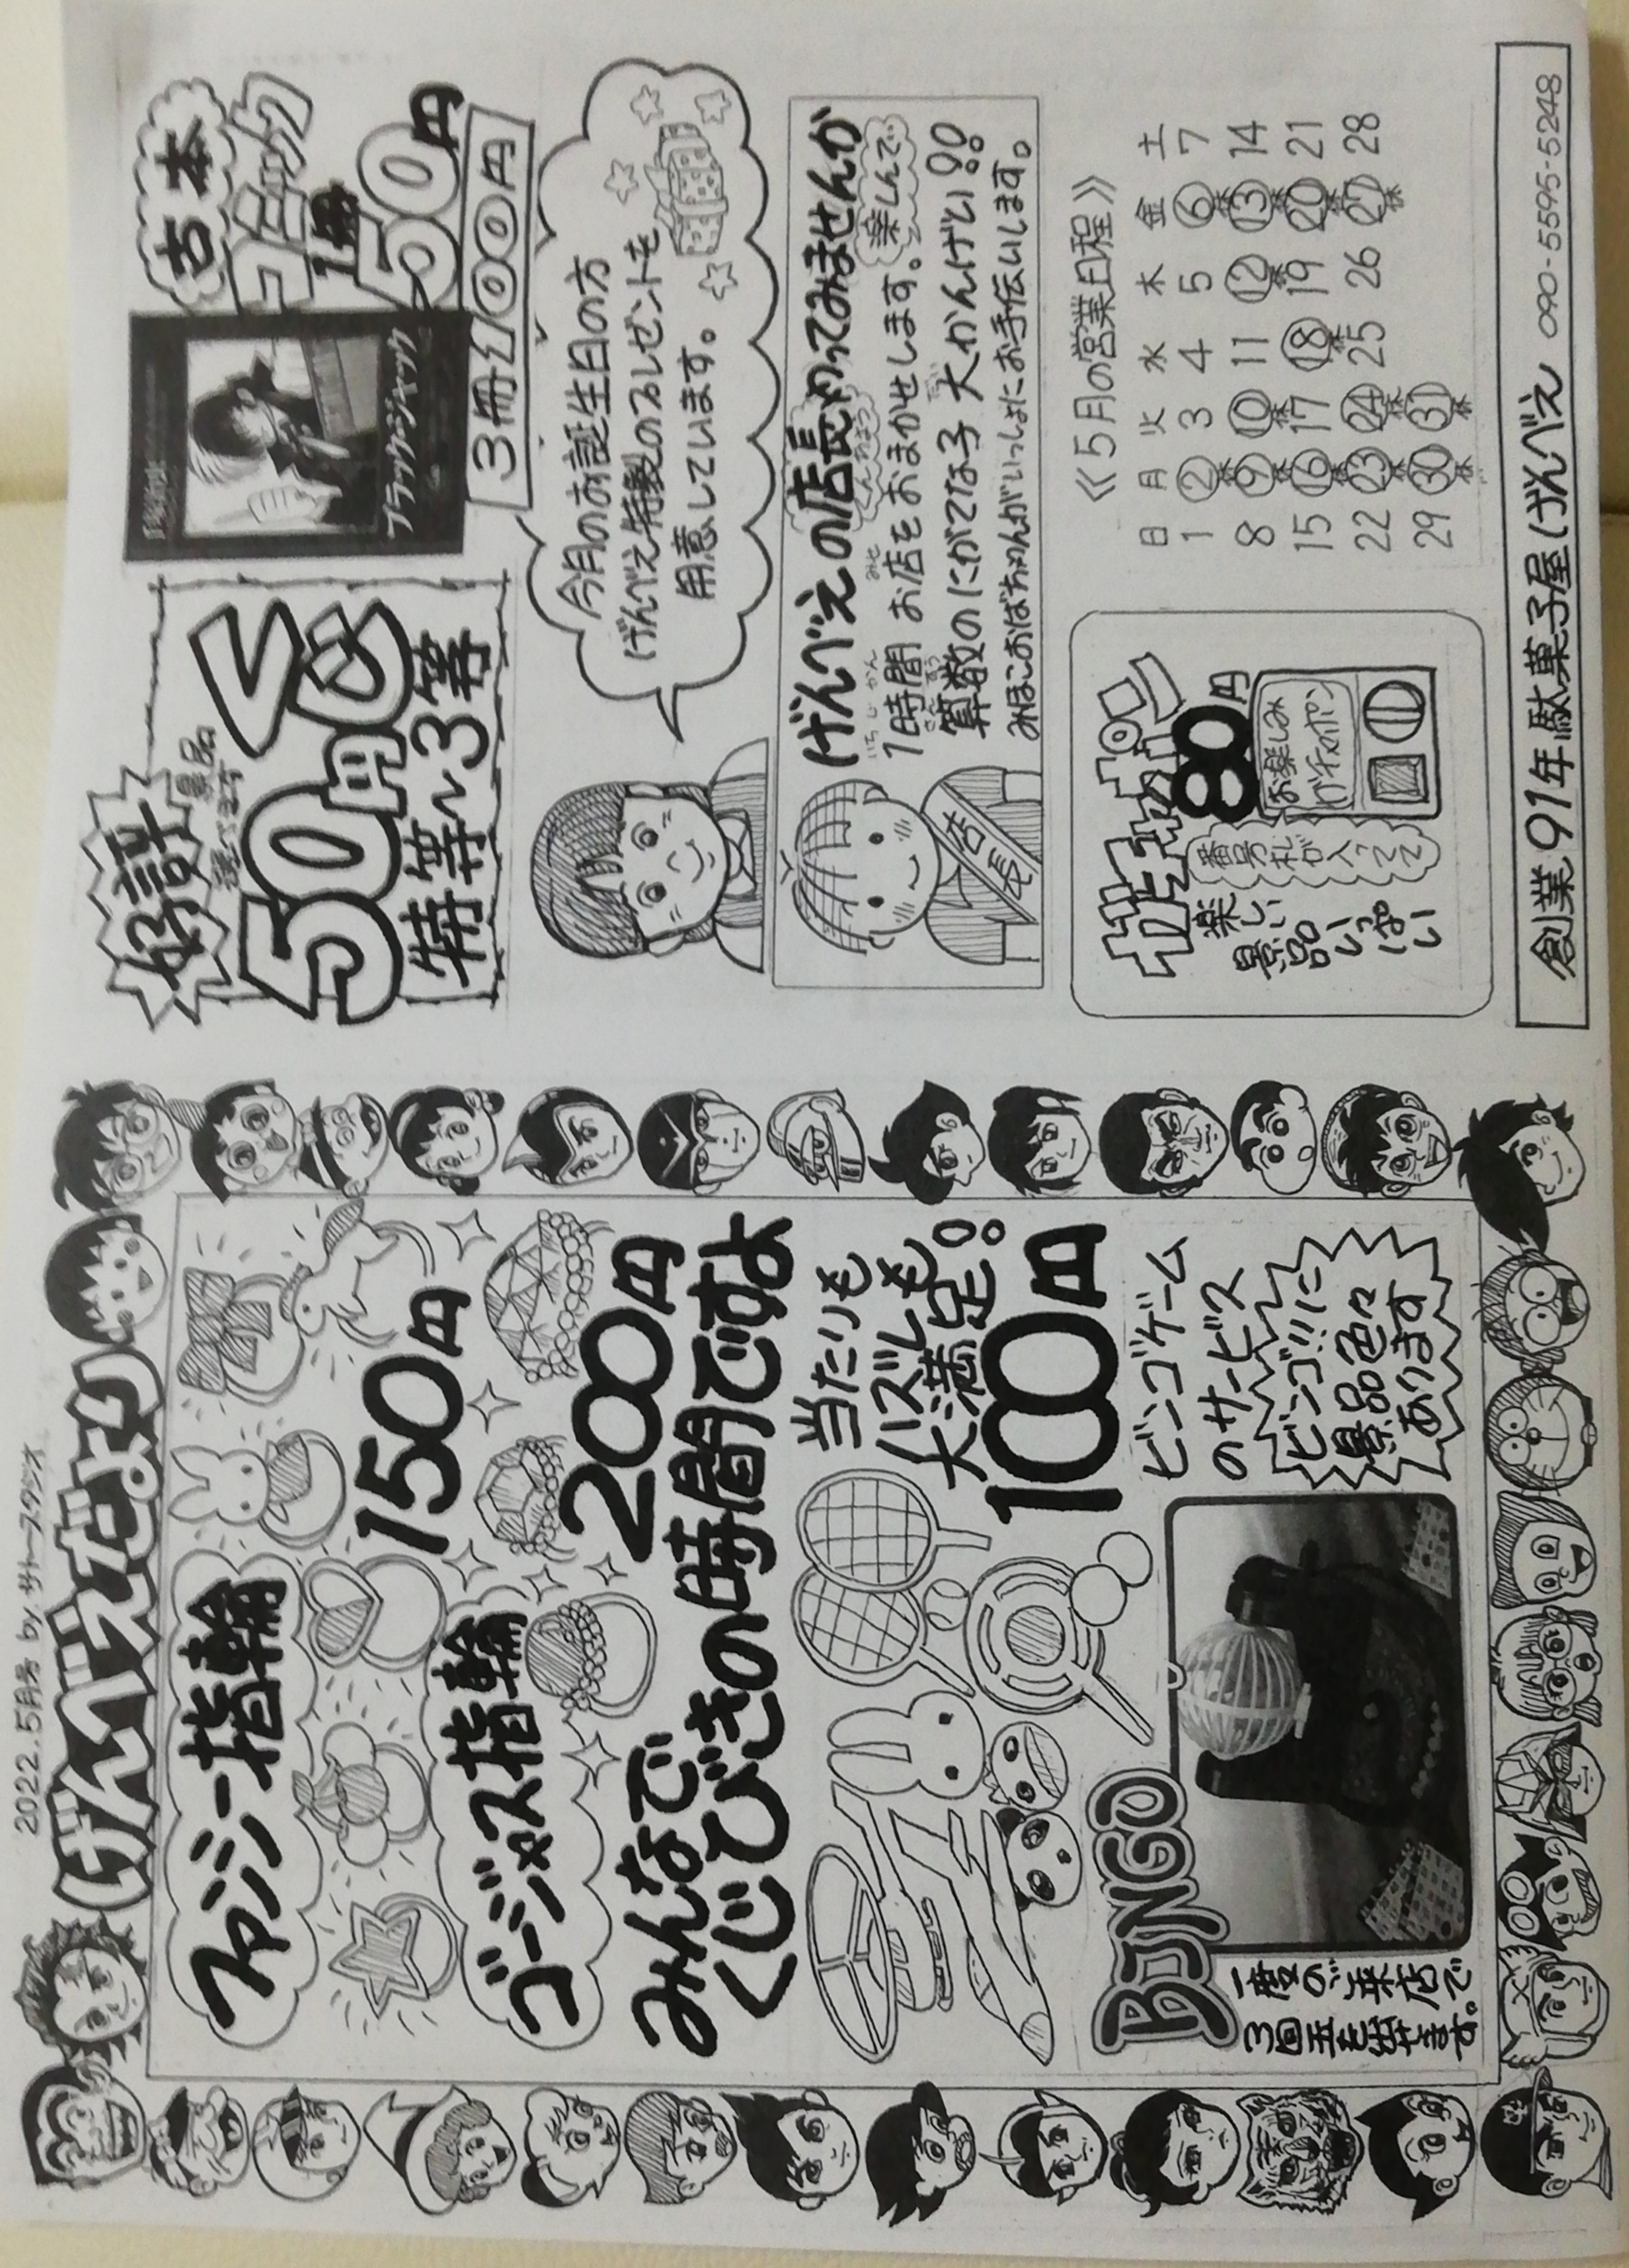 2022.5月号 by.サトースタジオ
げんべえだより
ファンシー指輪
150円
ゴージャス指輪
200円
みんなで
くじびきの時間ですよ
当たりも
ハズレも
大満足。
100円
BINGO
一度のご来店で
3回玉を出せます。
ビンゴゲーム
のサービス
ビンゴ!!に
景品色々
あります
好評
景品
選べます
50円くじ
特等~3等
古本
コミック
1冊
50円
3冊100円
ブラック・ジャック
今月のお誕生日の方
げんべえ特製のプレゼントを
用意しています。
げんべえの店長やってみませんか
いちじかん みせ
1時間 お店をおまかせします。楽しんで
さんすう だい
算数のにがてな子 大かんげい!!
みほこおばちゃんがいっしょにお手伝いします。
店長
ガチャポン
80円
楽しい
景品
いっぱい
番号札が入ってる
お楽しみ
ガチャポン
《5月の営業日程》
日 月 火 水 木 金 土
1 2 3 4 5 6 7
8 9 10 11 12 13 14
休 休 休 休
15 16 17 18 19 20 21
休 休 休
22 23 24 25 26 27 28
休 休 休
29 30 31
休 休
創業91年駄菓子屋(げんべえ 090-5595-5248